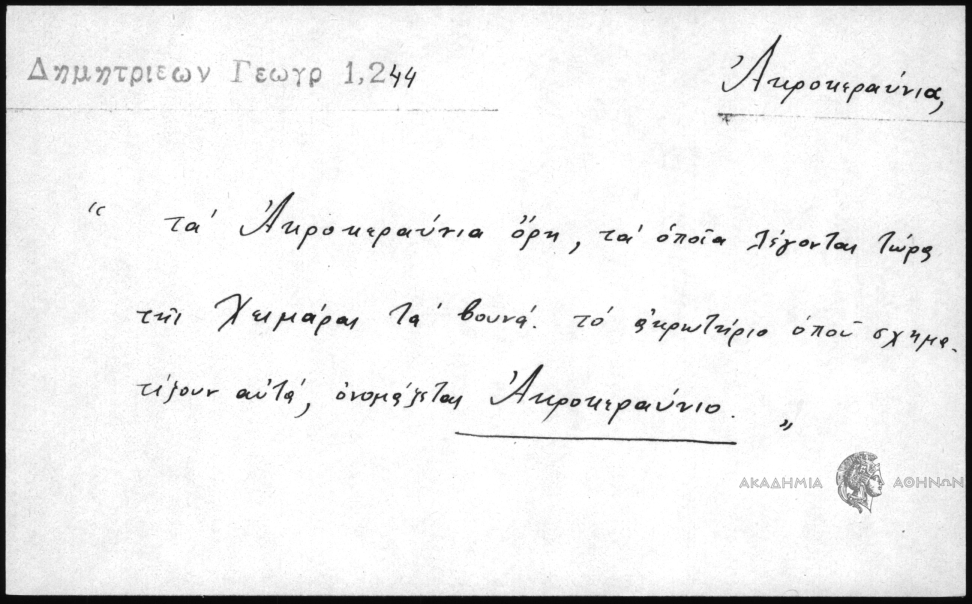 Δημητριεων Γεωγρ 1,244
Ἀκροκεραύνια,
“ τὰ Ἀκροκεραύνια ὄρη, τὰ ὁποῖα λέγονται τώρα
τῆς Χειμάρας τὰ βουνά. τὸ ἀκρωτήριο ὁποῦ σχημα-
τίζουν αὐτά, ὀνομάζεται Ἀκροκεραύνιο. „
ΑΚΑΔΗΜΙΑ ΑΘΗΝΩΝ